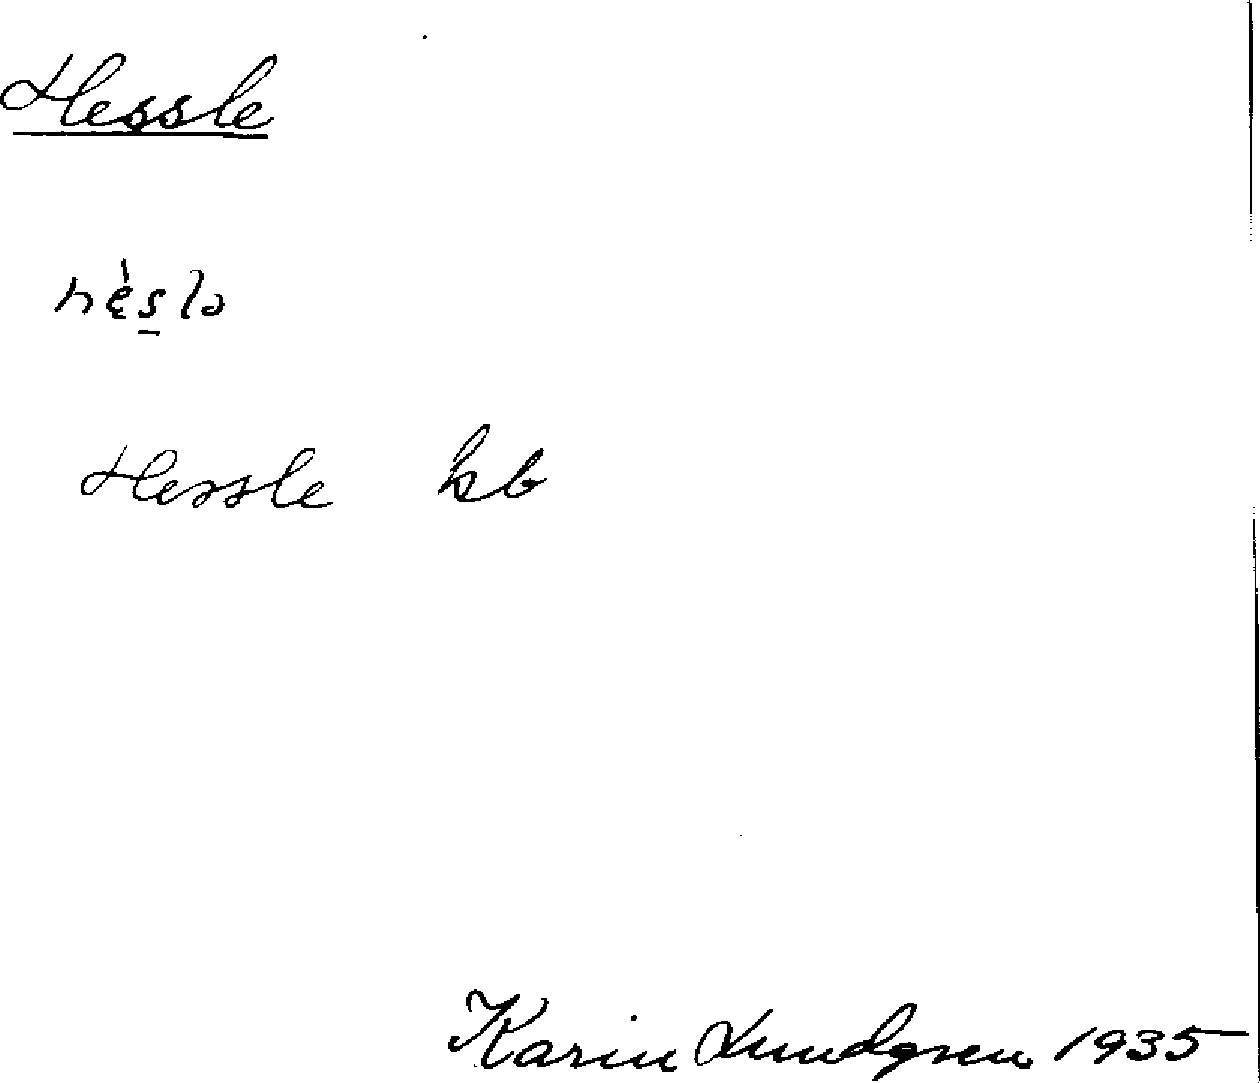 Hessle
hę̀s̱lə
Hessle kb
Karin Lundgren 1935